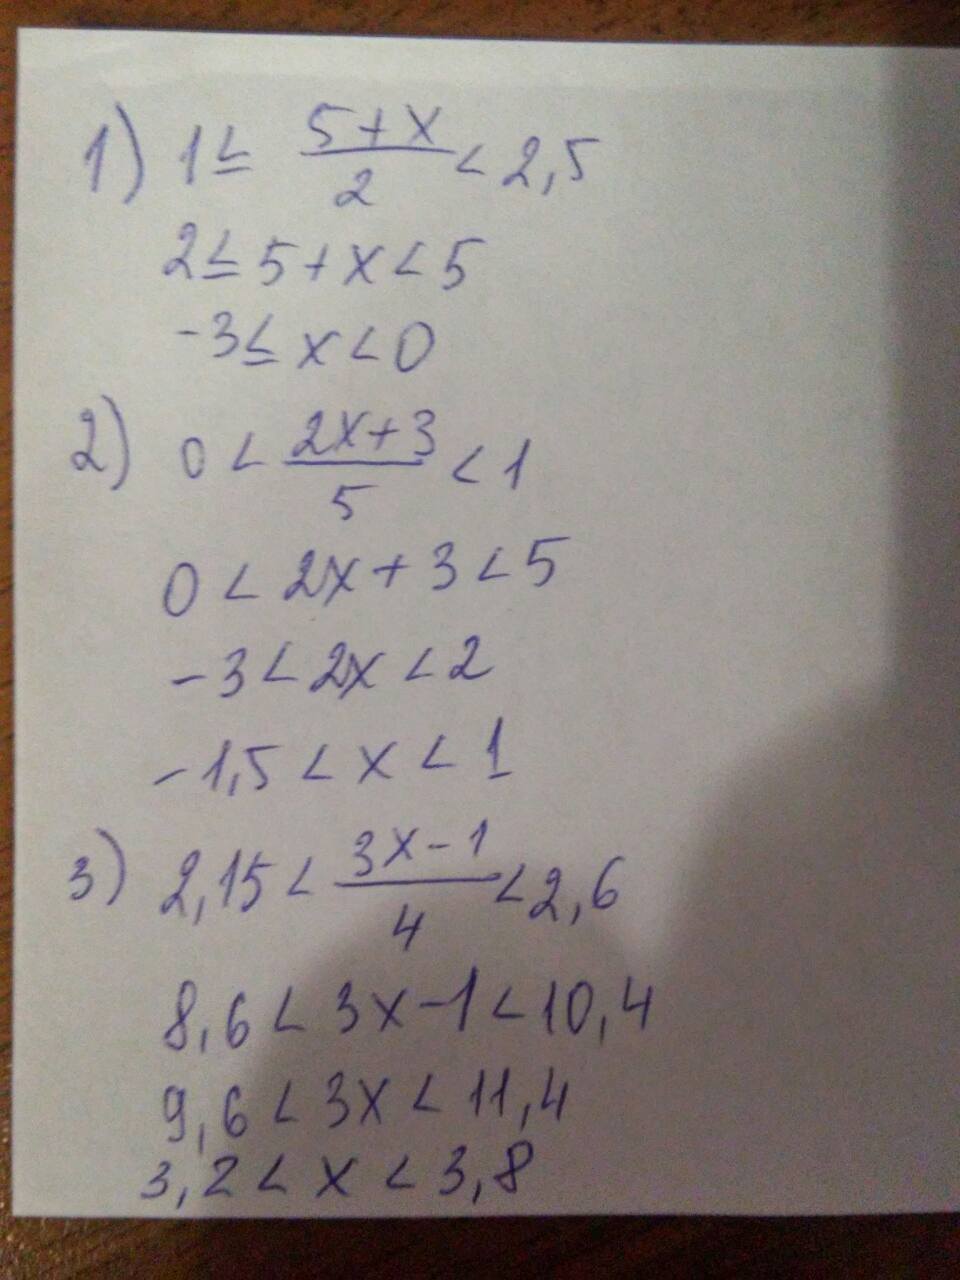 1) 1 ≤ (5+x)/2 < 2,5
2 ≤ 5+x < 5
-3 ≤ x < 0
2) 0 < (2x+3)/5 < 1
0 < 2x+3 < 5
-3 < 2x < 2
-1,5 < x < 1
3) 2,15 < (3x-1)/4 < 2,6
8,6 < 3x-1 < 10,4
9,6 < 3x < 11,4
3,2 < x < 3,8